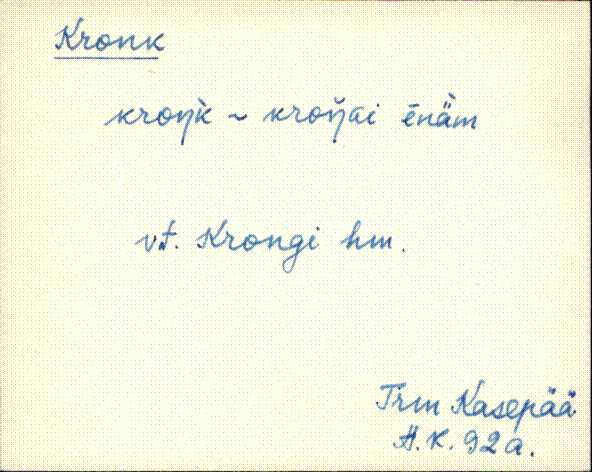 Kronk
kroŋ̀k ~ kroŋ̆ai ēnäm
vt. Krongi hm.
Trm Kasepää
H.K. 92a.